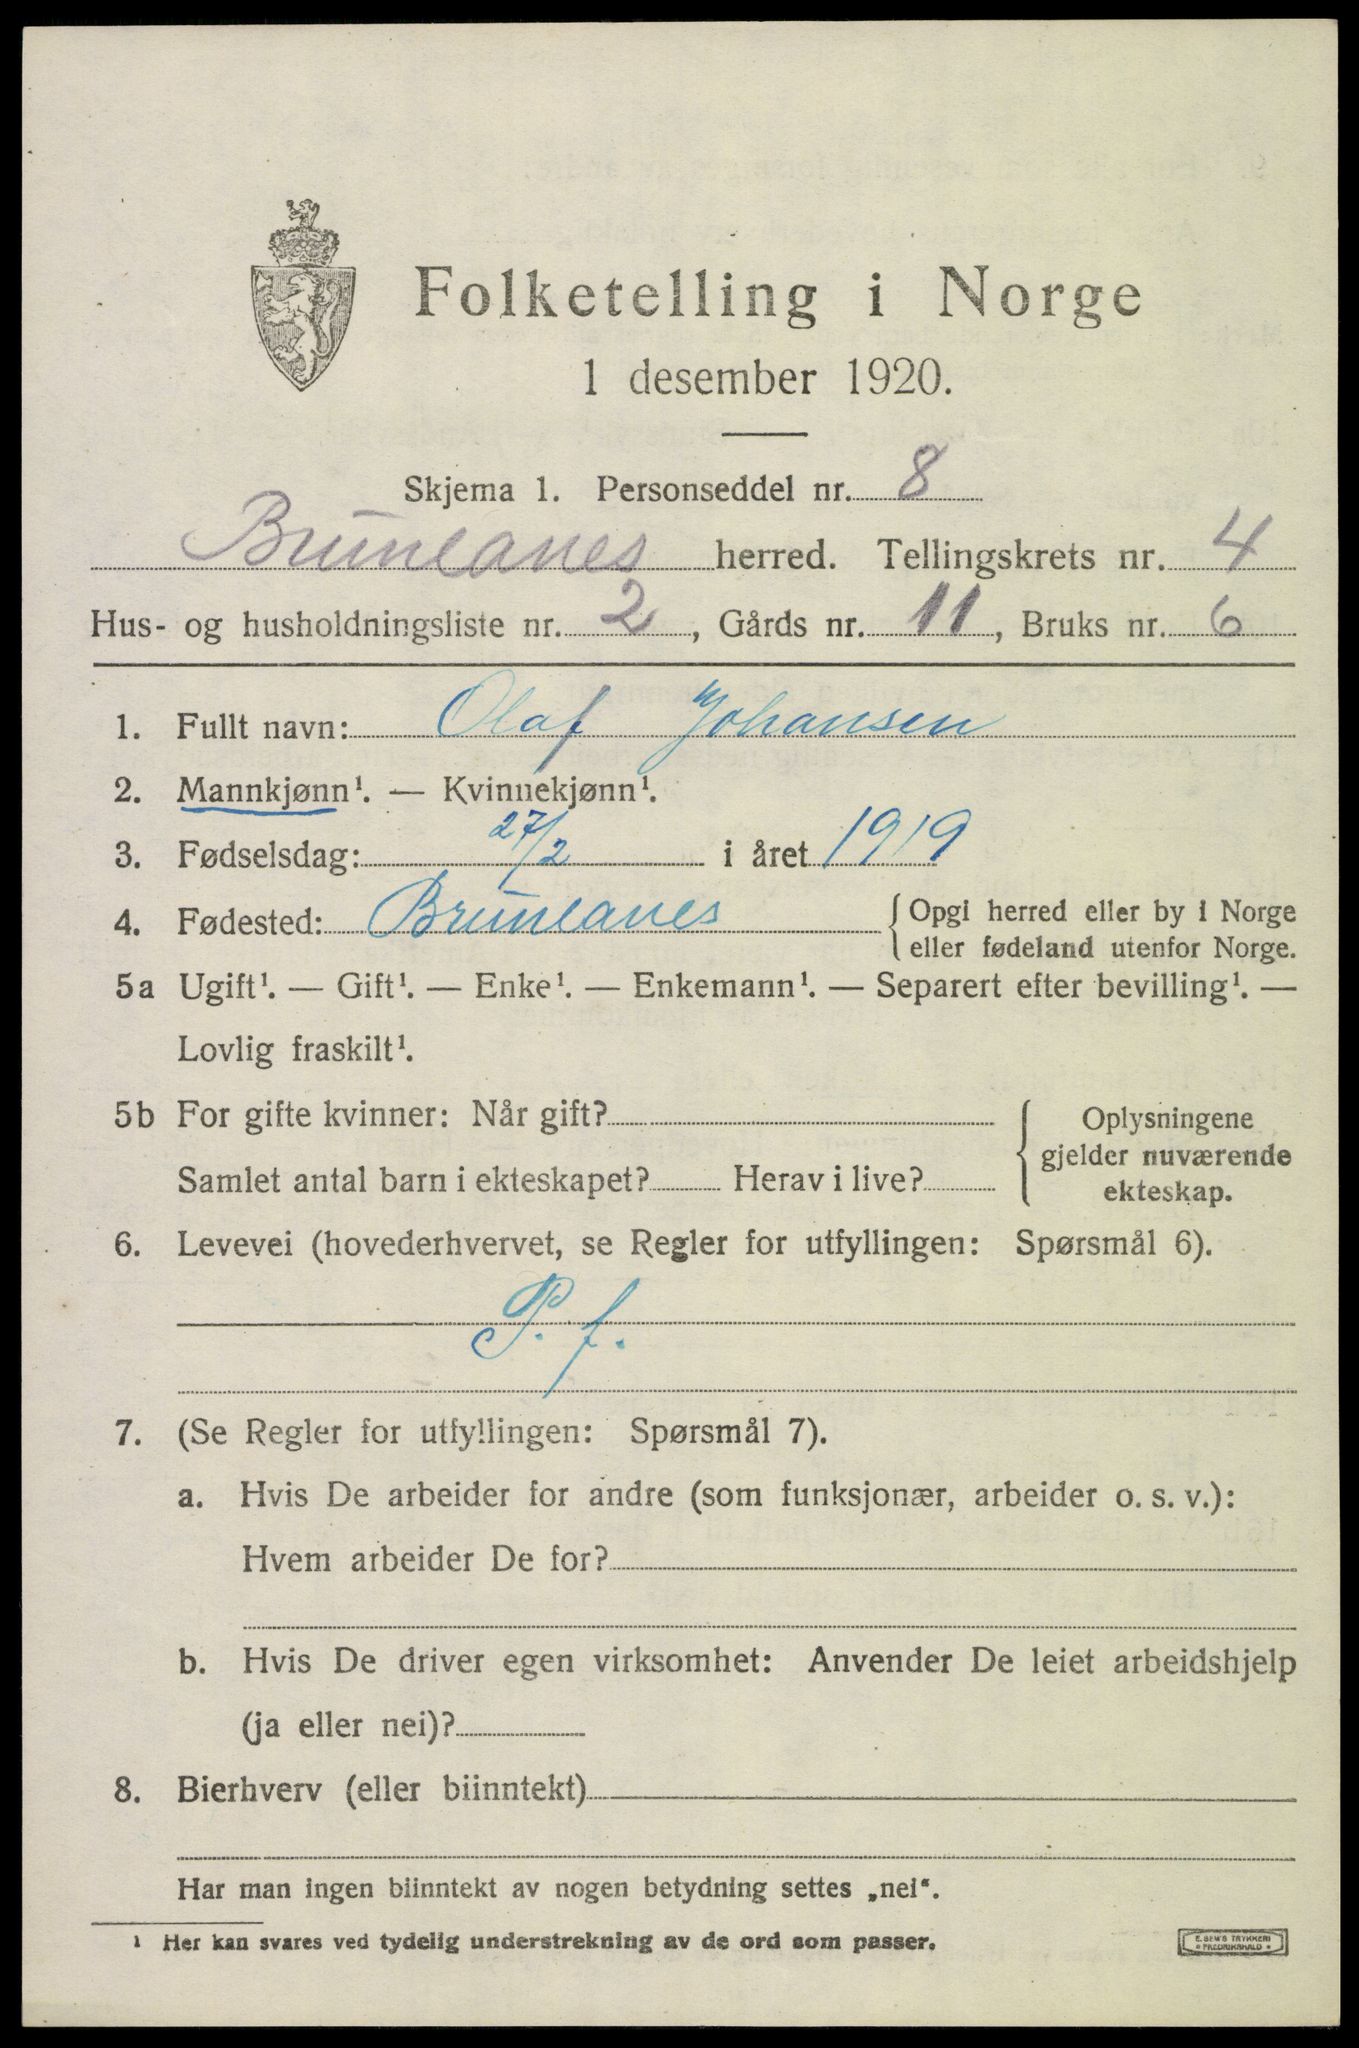 Folketelling i Norge
1 desember 1920.
Skjema 1. Personseddel nr. 8
Brunlanes herred. Tellingskrets nr. 4
Hus- og husholdningsliste nr. 2, Gårds nr. 11, Bruks nr. 6
1. Fullt navn: Olaf Johansen
2. Mannkjønn¹. — Kvinnekjønn¹.
3. Fødselsdag: 27/2 i året 1919
4. Fødested: Brunlanes { Opgi herred eller by i Norge
eller fødeland utenfor Norge.
5a Ugift¹. — Gift¹. — Enke¹. — Enkemann¹. — Separert efter bevilling¹. —
Lovlig fraskilt¹.
5b For gifte kvinner: Når gift?
Samlet antal barn i ekteskapet? Herav i live?
{ Oplysningene
gjelder nuværende
ekteskap.
6. Levevei (hovederhvervet, se Regler for utfyllingen: Spørsmål 6).
P. f.
7. (Se Regler for utfyllingen: Spørsmål 7).
a. Hvis De arbeider for andre (som funksjonær, arbeider o. s. v.):
Hvem arbeider De for?
b. Hvis De driver egen virksomhet: Anvender De leiet arbeidshjelp
(ja eller nei)?
8. Bierhverv (eller biinntekt)
Har man ingen biinntekt av nogen betydning settes „nei“.
¹ Her kan svares ved tydelig understrekning av de ord som passer.
E. SEM'S TRYKKERI
* FREDRIKSHALD *